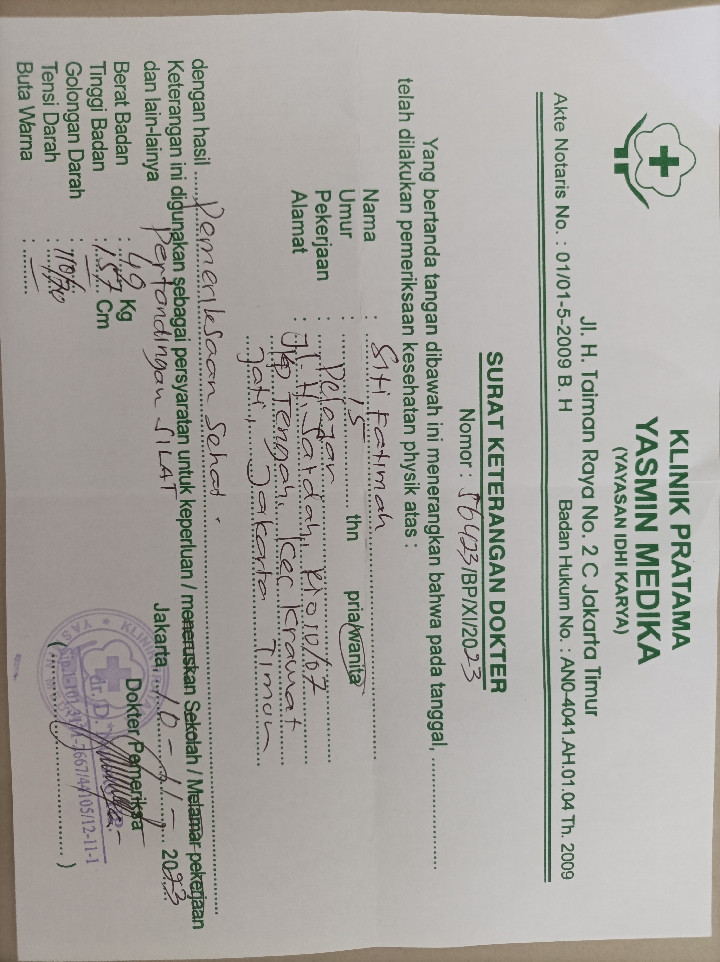 KLINIK PRATAMA
YASMIN MEDIKA
(YAYASAN IDHI KARYA)
Jl. H. Taiman Raya No. 2 C Jakarta Timur
Akte Notaris No. : 01/01-5-2009 B. H Badan Hukum No. : AN0-4041.AH.01.04 Th. 2009
SURAT KETERANGAN DOKTER
Nomor : /BP/XI/2023
Yang bertanda tangan dibawah ini menerangkan bahwa pada tanggal, ....................
telah dilakukan pemeriksaan kesehatan physik atas :
Nama : Siti Fatimah
Umur : 15 thn pria/wanita
Pekerjaan : Pelajar
Alamat : Jl. H. Sardah, Rt 010/07
Kp Tengah, Kec Kramat
Jati, Jakarta Timur
dengan hasil Pemeriksaan Sehat.
Keterangan ini digunakan sebagai persyaratan untuk keperluan / meneruskan Sekolah / Melamar pekerjaan
dan lain-lainya Pertandingan SILAT
Berat Badan : 49 Kg
Tinggi Badan : 157 Cm
Golongan Darah : —
Tensi Darah : 110/70
Buta Warna : —
Jakarta, 10-11-2023
Dokter Pemeriksa
KLINIK
YAS
dr. D
(.................... )